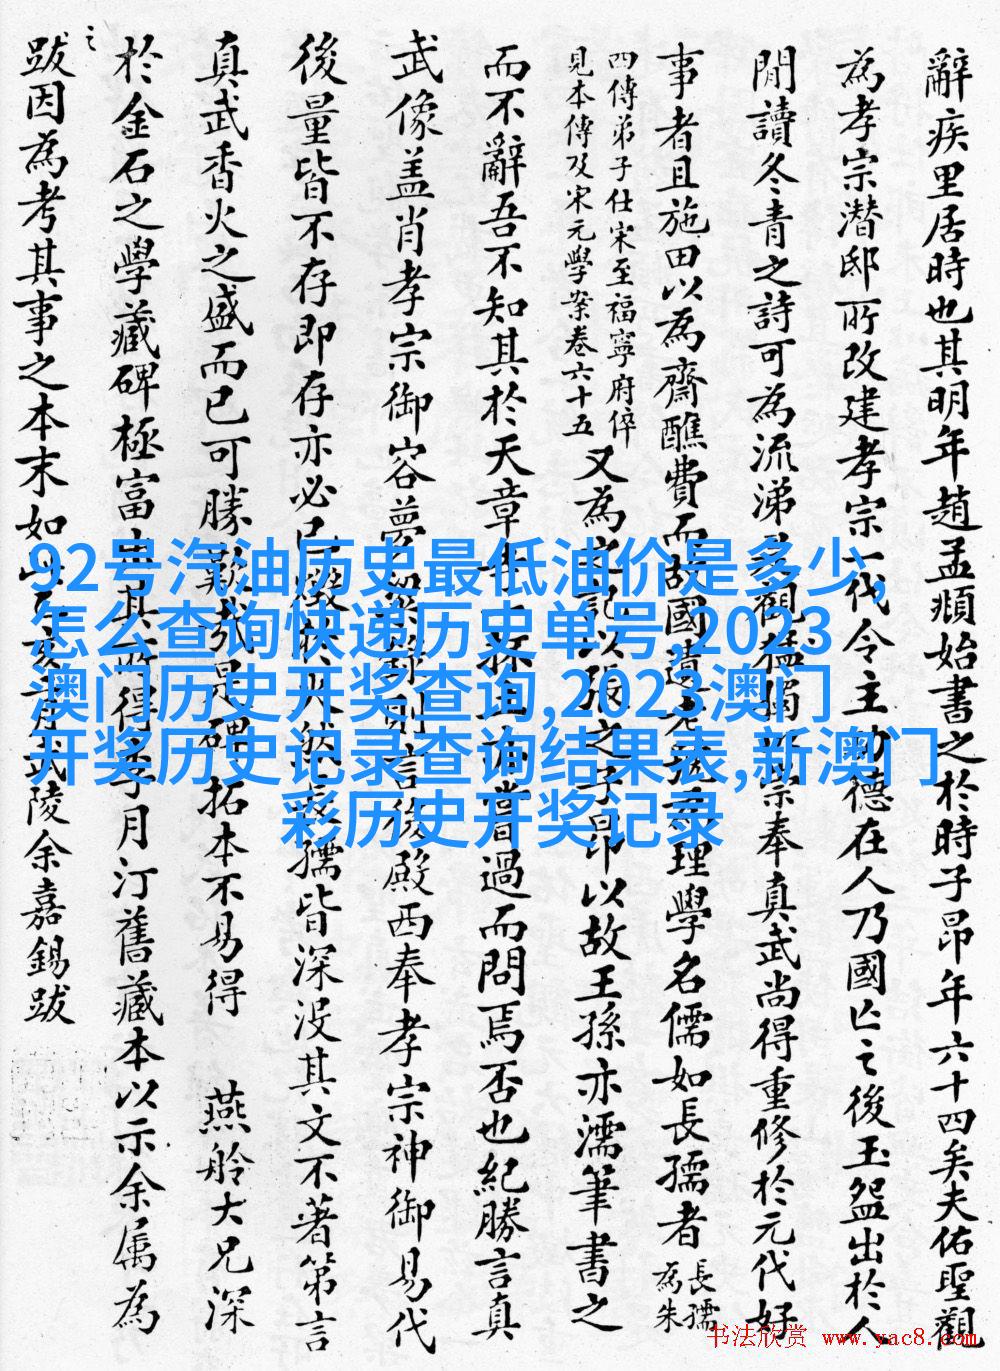 辭疾里居時也其明年趙孟頫始書之於時子昂年六十四矣夫佑聖觀
為孝宗潜邸所改建孝宗一代令主功德在人乃國亡之後玉盌出於人
閒讀冬青之詩可為流涕觀崇奉真武尚得重修於元代好
事者且施田以為齋醮費而故國遺老理學名儒如長孺者長孺為朱
四傳弟子仕宋至福寧府倅
見本傳及宋元學案卷六十五
又為之記以張之子昂以故王孫亦濡筆書之
而不辭吾不知其於天章嘗過而問焉否也紀勝言真
武像盖肖孝宗御容夢粱錄則言後殿西奉孝宗神御易代
後量皆不存即存亦必已燬於火然長孺皆深没其文不著第言
真武香火之盛而已可勝歎哉是碑拓本不易得 燕舲大兄深
於金石之學藏碑極富出其所得李月汀舊藏本以示余属為
之
跋因為考其事之本末如此武陵余嘉錫跋
92号汽油历史最低油价是多少,
怎么查询快递历史单号,2023
澳门历史开奖查询,2023澳门
开奖历史记录查询结果表,新澳门
彩历史开奖记录
书法欣赏 www.yac8.com